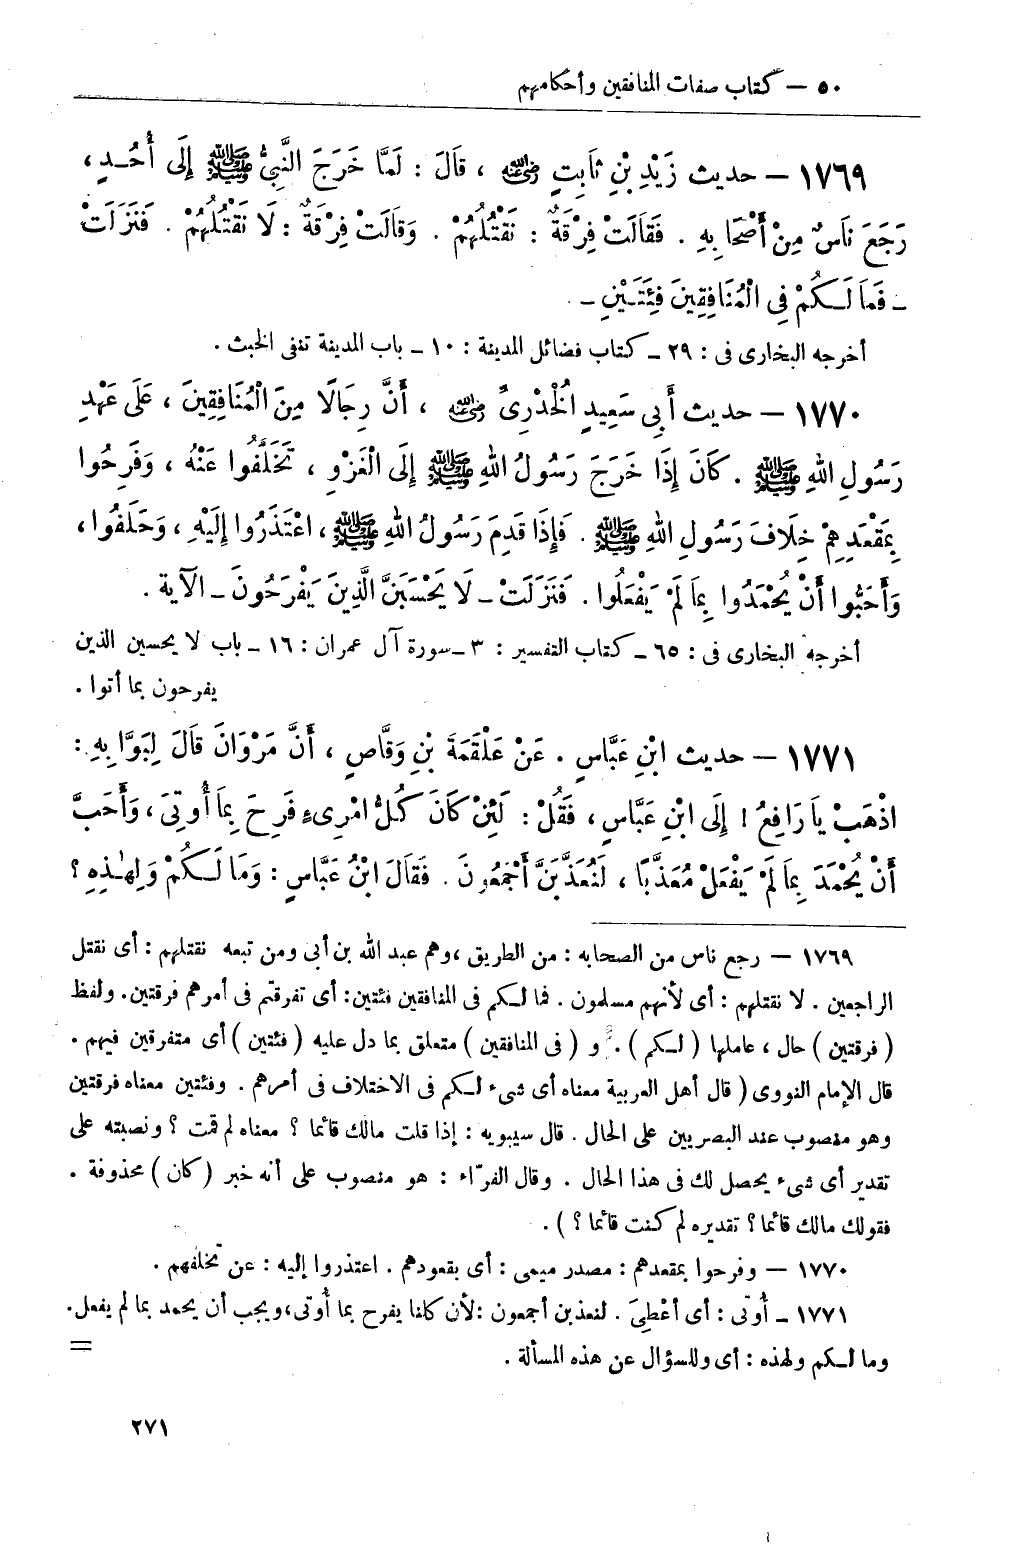 ٥٠ — كتاب صفات المنافقين وأحكامهم
١٧٦٩ — حديث زَيْدِ بْنِ ثَابِتٍ رضي الله عنه ، قَالَ : لَمَّا خَرَجَ النَّبِيُّ ﷺ إِلَى أُحُدٍ ،
رَجَعَ نَاسٌ مِنْ أَصْحَابِهِ . فَقَالَتْ فِرْقَةٌ : نَقْتُلُهُمْ . وَقَالَتْ فِرْقَةٌ : لَا نَقْتُلُهُمْ . فَنَزَلَتْ
ــ فَمَا لَـكُمْ فِى الْمُنَافِقِينَ فِئَتَـيْنِ ــ
أخرجه البخارى فى : ٢٩ ــ كتاب فضائل المدينة : ١٠ ــ باب المدينة تنفى الخبث .
١٧٧٠ — حديث أَبِى سَعِيدٍ الْخُدْرِىِّ رضي الله عنه ، أَنَّ رِجَالًا مِنَ الْمُنَافِقِينَ ، عَلَى عَهْدِ
رَسُولِ اللهِ ﷺ . كَانَ إِذَا خَرَجَ رَسُولُ اللهِ ﷺ إِلَى الْغَزْوِ ، تَخَلَّفُوا عَنْهُ ، وَفَرِحُوا
بِمَقْعَدِهِمْ خِلَافَ رَسُولِ اللهِ ﷺ . فَإِذَا قَدِمَ رَسُولُ اللهِ ﷺ ، اعْتَذَرُوا إِلَيْهِ ، وَحَلَفُوا ،
وَأَحَبُّوا أَنْ يُحْمَدُوا بِمَا لَمْ يَفْعَلُوا . فَنَزَلَتْ ــ لَا يَحْسَبَنَّ الَّذِينَ يَفْرَحُونَ ــ الآية .
أخرجه البخارى فى : ٦٥ ــ كتاب التفسير : ٣ ــ سورة آل عمران : ١٦ ــ باب لا يحسبن الذين
يفرحون بما أتوا .
١٧٧١ — حديث ابْنِ عَبَّاسٍ . عَنْ عَلْقَمَةَ بْنِ وَقَّاصٍ ، أَنَّ مَرْوَانَ قَالَ لِبَوَّابِهِ :
اذْهَبْ يَا رَافِعُ ! إِلَى ابْنِ عَبَّاسٍ ، فَقُلْ : لَئِنْ كَانَ كُلُّ امْرِىءٍ فَرِحَ بِمَا أُوتِىَ ، وَأَحَبَّ
أَنْ يُحْمَدَ بِمَا لَمْ يَفْعَلْ مُعَذَّبًا ، لَنُعَذَّبَنَّ أَجْمَعُونَ . فَقَالَ ابْنُ عَبَّاسٍ : وَمَا لَـكُمْ وَلِهٰذِهِ ؟
١٧٦٩ — رجع ناس من الصحابه : من الطريق ، وهم عبد الله بن أبى ومن تبعه نقتلهم : أى نقتل
الراجعين . لا نقتلهم : أى لأنهم مسلمون . فما لـكم فى المنافقين فئتين : أى تفرقتم فى أمرهم فرقتين . ولفظ
( فرقتين ) حال ، عاملها ( لـكم ) . و ( فى المنافقين ) متعلق بما دل عليه ( فئتين ) أى متفرقين فيهم .
قال الإمام النووى ( قال أهل العربية معناه أى شىء لـكم فى الاختلاف فى أمرهم . وفئتين معناه فرقتين
وهو منصوب عند البصريين على الحال . قال سيبويه : إذا قلت مالك قائما ؟ معناه لم قمت ؟ ونصبته على
تقدير أى شىء يحصل لك فى هذا الحال . وقال الفرّاء : هو منصوب على أنه خبر (كان ) محذوفة .
فقولك مالك قائما ؟ تقديره لم كنت قائما ؟ ) .
١٧٧٠ — وفرحوا بمقعدهم : مصدر ميمى : أى بقعودهم . اعتذروا إليه : عن تخلفهم .
١٧٧١ ــ أُوتى : أى أُعْطِىَ . لنعذبن أجمعون : لأن كلنا يفرح بما أُوتى ، ويحب أن يحمد بما لم يفعل .
وما لـكم ولهذه : أى وللسؤال عن هذه المسألة .
=
٢٧١